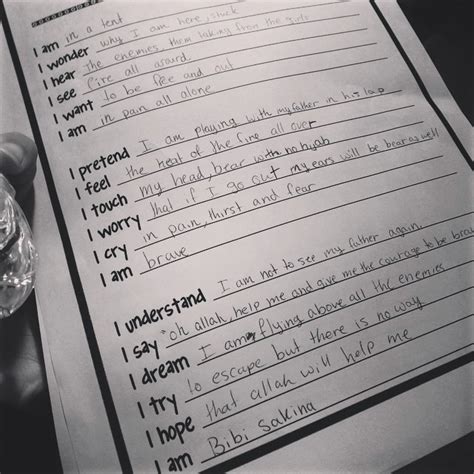 I am in a tent
I wonder why I am here, stuck
I hear the enemies, them taking from the girls
I see fire all around
I want to be free and out
I am in pain all alone
I pretend I am playing with my father in his lap
I feel the heat of the fire all over
I touch my head, bear with no
I worry that if I go out my ears will be bear as well
I cry in pain, thirst and fear
I am brave
I understand I am not to see my father again
I say "oh allah, help me and give me the courage to be
I dream I am flying above all the enemies
I try to escape but there is no way
I hope that allah will help me
I am Bibi Sakina